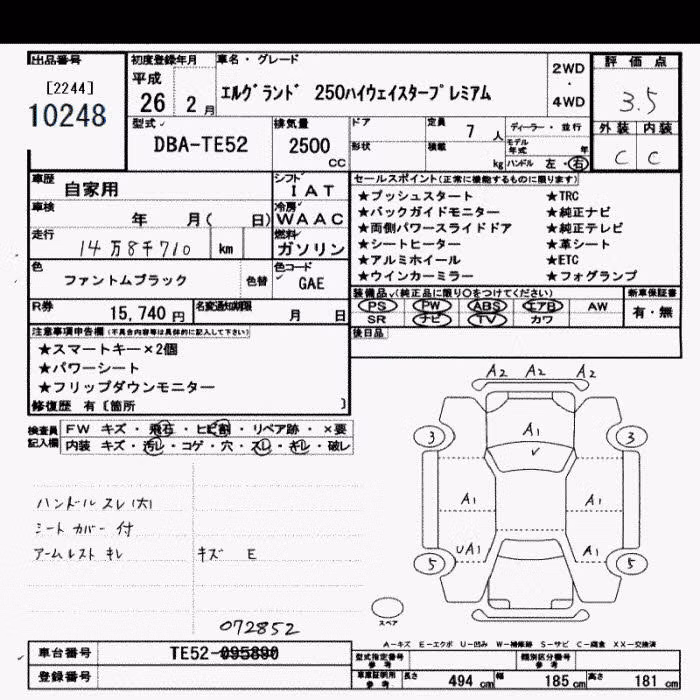 出品番号
[2244]
10248
初度登録年月
平成
26 2月
車名・グレード
エルグランド 250ハイウェイスタープレミアム
2WD
・
4WD
評価点
3.5
外装 内装
C C
型式
DBA-TE52
排気量
2500
CC
ドア
形状
定員 7 人
積載 kg
ディーラー・並行
モデル年式 年
ハンドル 左・右
車歴 自家用
シフト IAT
車検 年 月( 日)
冷房 WAAC
走行 14万8千710 km
燃料 ガソリン
色 ファントムブラック 色替
色コード GAE
R券 15,740円
名変通知期限 月 日
セールスポイント(正常に機能するものに限ります)
★プッシュスタート ★TRC
★バックガイドモニター ★純正ナビ
★両側パワースライドドア ★純正テレビ
★シートヒーター ★革シート
★アルミホイール ★ETC
★ウインカーミラー ★フォグランプ
装備品(純正品に限り○をつけてください)
PS PW ABS エアB AW
SR ナビ TV カワ
新車保証書
有・無
後日品
注意事項申告欄(不具合内容等は具体的に記入して下さい)
★スマートキー×2個
★パワーシート
★フリップダウンモニター
修復歴 有〔箇所 〕
検査員記入欄
FW キズ・飛石・ヒビ割・リペア跡・×要
内装 キズ・汚レ・コゲ・穴・スレ・キレ・破レ
ハンドル スレ(大)
シート カバー 付
アームレスト キレ
キズ E
A2 A2 A2
A1
3 3
A1 A1
UA1 A1
5 5
スペア
072852
A-キズ E-エクボ U-凹み W-補修跡 S-サビ C-腐食 XX-交換済
車台番号 TE52-095890
登録番号
型式指定番号 参考
類別区分番号 参考
車庫証明用 参考
長さ 494 cm 幅 185 cm 高さ 181 cm